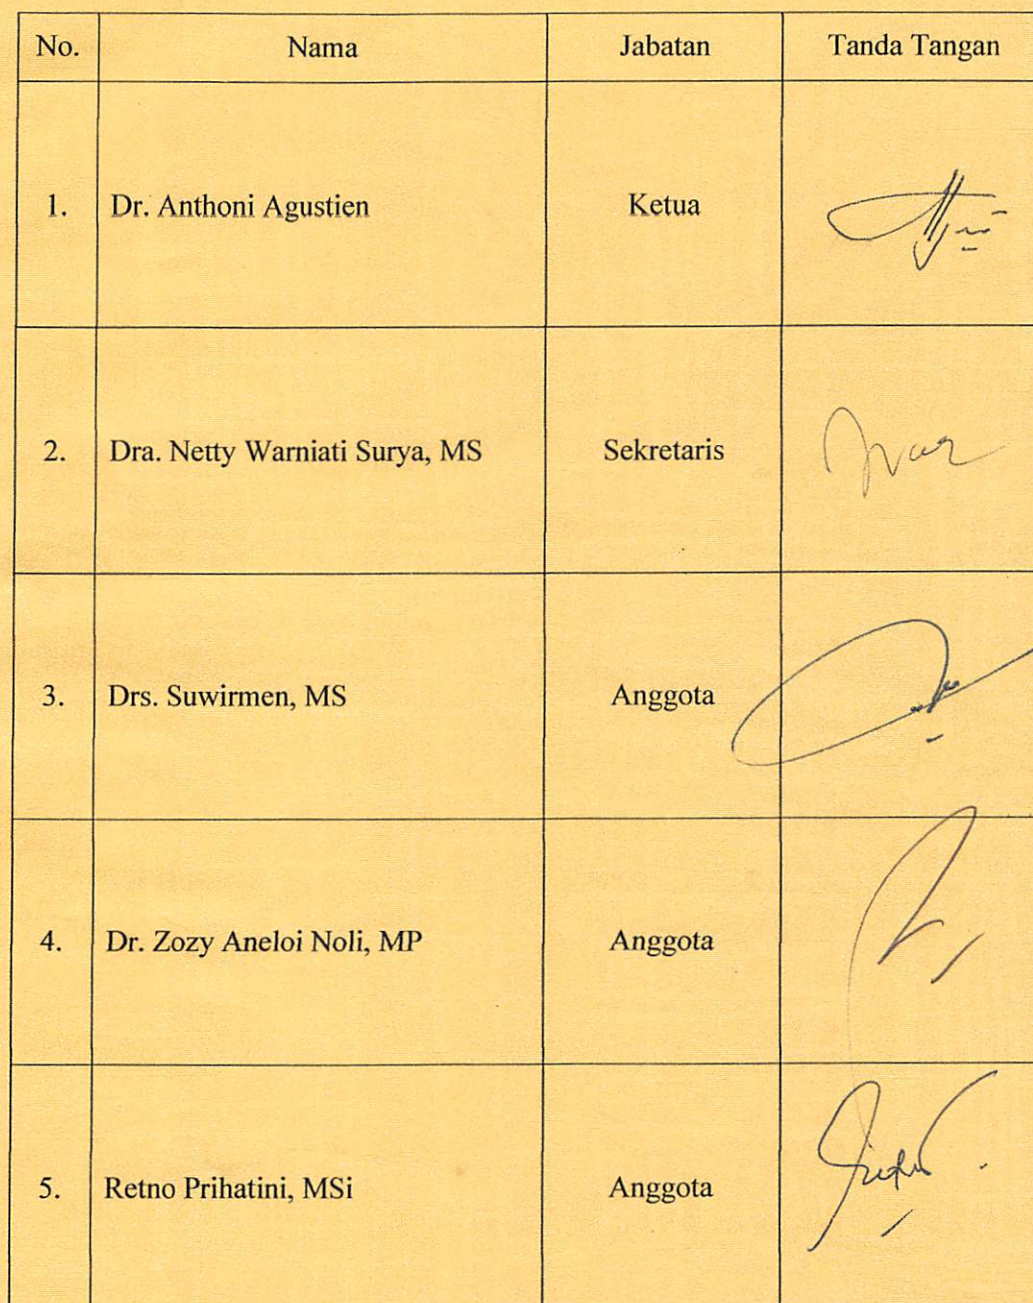 No. Nama Jabatan Tanda Tangan
1. Dr. Anthoni Agustien Ketua
2. Dra. Netty Warniati Surya, MS Sekretaris
3. Drs. Suwirmen, MS Anggota
4. Dr. Zozy Aneloi Noli, MP Anggota
5. Retno Prihatini, MSi Anggota